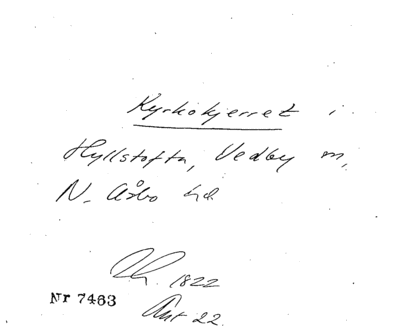 Kyrkokjerret i
Hyllstofta, Vedby m,
N. Åsbo hd
1822
Nr 7463
Ant 22.